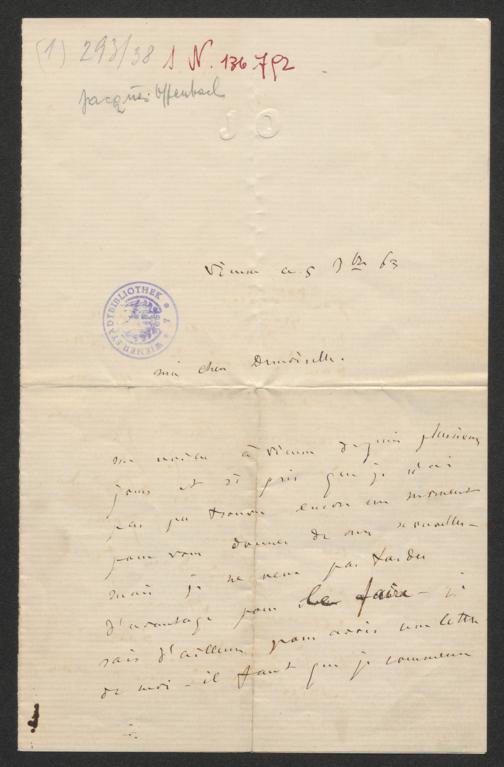 (1) 293/38 1 N. 136792
Jacques Offenbach
J O
WIENER STADTBIBLIOTHEK
Vienne
mon cher Demoiselle.
me voici à Vienne depuis plusieurs
jours et si pris que je n'ai
pas pu trouver encore un moment
pour vous donner de mes nouvelles -
mais je ne veux pas tarder
d'avantage pour le faire -
d'ailleurs une lettre
de moi - il faut que je commence